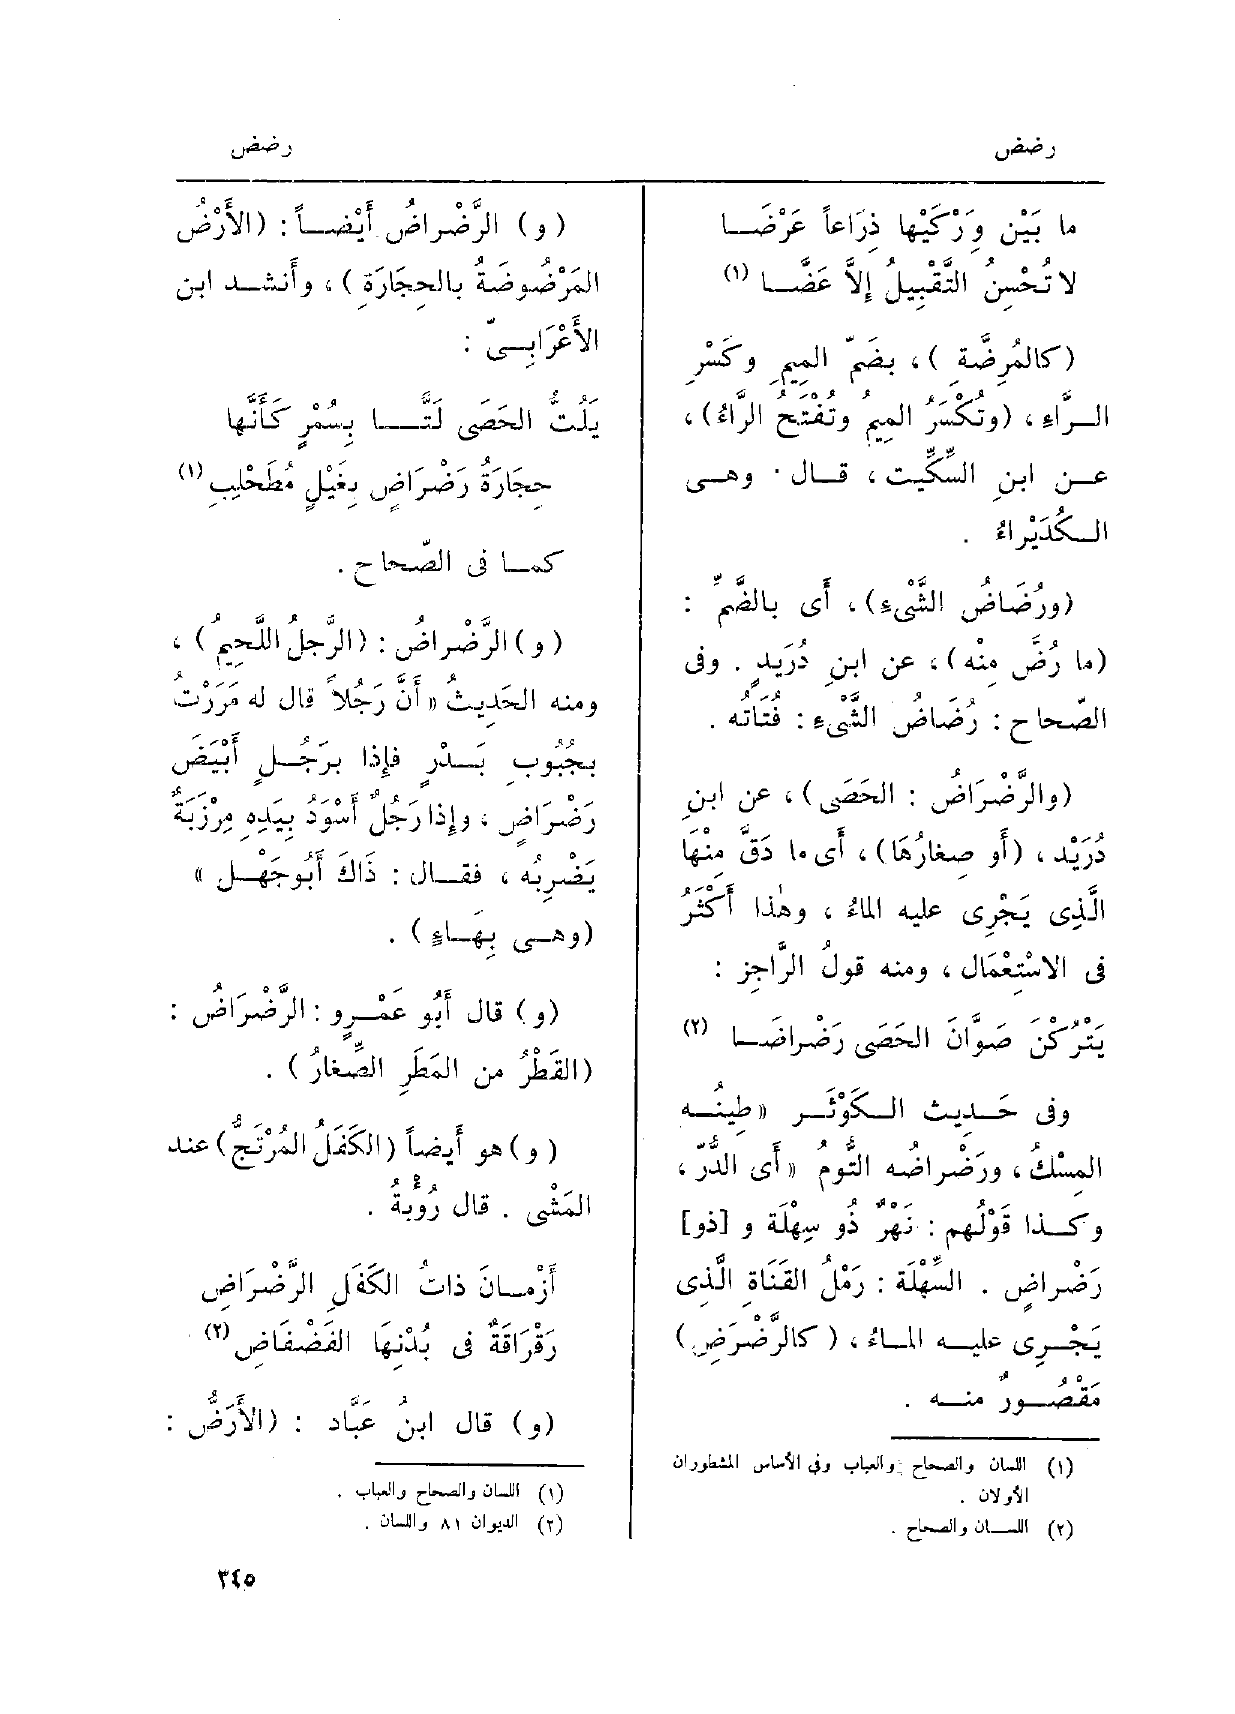 رضض
رضض
ما بَيْن وِرْكَيْها ذِرَاعاً عَرْضَــا
لا تُحْسِنُ التَّقْبِيلُ إِلاَّ عَضَّــا (١)
(كالمُرِضَّةِ )، بضَمّ الميمِ وكَسْرِ
الــرَّاءِ ، (وتُكْسَرُ الميمُ وتُفْتَحُ الرَّاءُ) ،
عــن ابنِ السِّكِّيت ، قــال . وهــى
الــكُدَيْراءُ .
(ورُضَاضُ الشَّىْءِ) ، أَى بالضَّمِّ :
(ما رُضَّ مِنْه) ، عن ابنِ دُرَيدٍ . وفى
الصّحاح : رُضَاضُ الشَّىْءِ : فُتَاتُه .
(والرَّضْرَاضُ : الحَصَى) ، عن ابنِ
دُرَيْد ، (أَو صِغارُهَا) ، أَى ما دَقَّ مِنْهَا
الَّذِى يَجْرِى عليه الماءُ ، وهٰذا أَكْثَرُ
فى الاسْتِعْمَال ، ومنه قولُ الرَّاجِز :
يَتْرُكْنَ صَوَّانَ الحَصَى رَضْراضَــا (٢)
وفى حَــدِيث الــكَوْثَــر « طِينُــه
المِسْكُ ، ورَضْراضُه التُّومُ » أَى الدُّرّ ،
وكــذا قَوْلُهم : نَهْرٌ ذُو سِهْلَة و [ذو]
رَضْراضٍ . السِّهْلَة : رَمْلُ القَنَاةِ الَّذِى
يَجْــرِى عليــه المــاءُ ، ( كالرَّضْرَضِ)
مَقْصُــورٌ منــه .
(١) اللسان والصحاح والعباب وفى الأساس المشطوران
الأولان .
(٢) اللســان والصحاح .
(و) الرَّضْراضُ أَيْضــاً : (الأَرْضُ
المَرْضُوضَةُ بالحِجَارَةِ ) ، وأَنشــد ابن
الأَعْرَابِــىّ :
يَلُتُّ الحَصَى لَتَّــا بِسُمْرٍ كَأَنَّها
حِجَارَةُ رَضْرَاضٍ بِغَيْلٍ مُطَحْلِبِ (١)
كمــا فى الصّحاح .
(و) الرَّضْراضُ : (الرَّجلُ اللَّحِيمُ ) ،
ومنه الحَدِيثُ « أَنَّ رَجُلاً قال له مَرَرْتُ
بجُبُوبِ بَــدْرٍ فإِذا برَجُــلٍ أَبْيَضَ
رَضْرَاضٍ ، وإِذا رَجُلٌ أَسْوَدُ بِيَدِهِ مِرْزَبَةٌ
يَضْرِبُه ، فقــال : ذَاكَ أَبُو جَهْــل »
(وهــى بِهَــاءٍ ) .
(و) قال أَبُو عَمْــرٍو : الرَّضْرَاضُ :
(القَطْرُ من المَطَرِ الصِّغارُ ) .
( و ) هو أَيضاً (الكَفَلُ المُرْتَجُّ) عند
المَشْى . قال رُؤْبةُ .
أَزْمــانَ ذاتُ الكَفَلِ الرَّضْرَاضِ
رَقْرَاقَةٌ فى بُدْنِهَا الفَضْفَاضِ (٢)
(و) قال ابنُ عَبَّاد : (الأَرَضُّ :
(١) اللسان والصحاح والعباب .
(٢) الديوان ٨١ واللسان .
٣٤٥